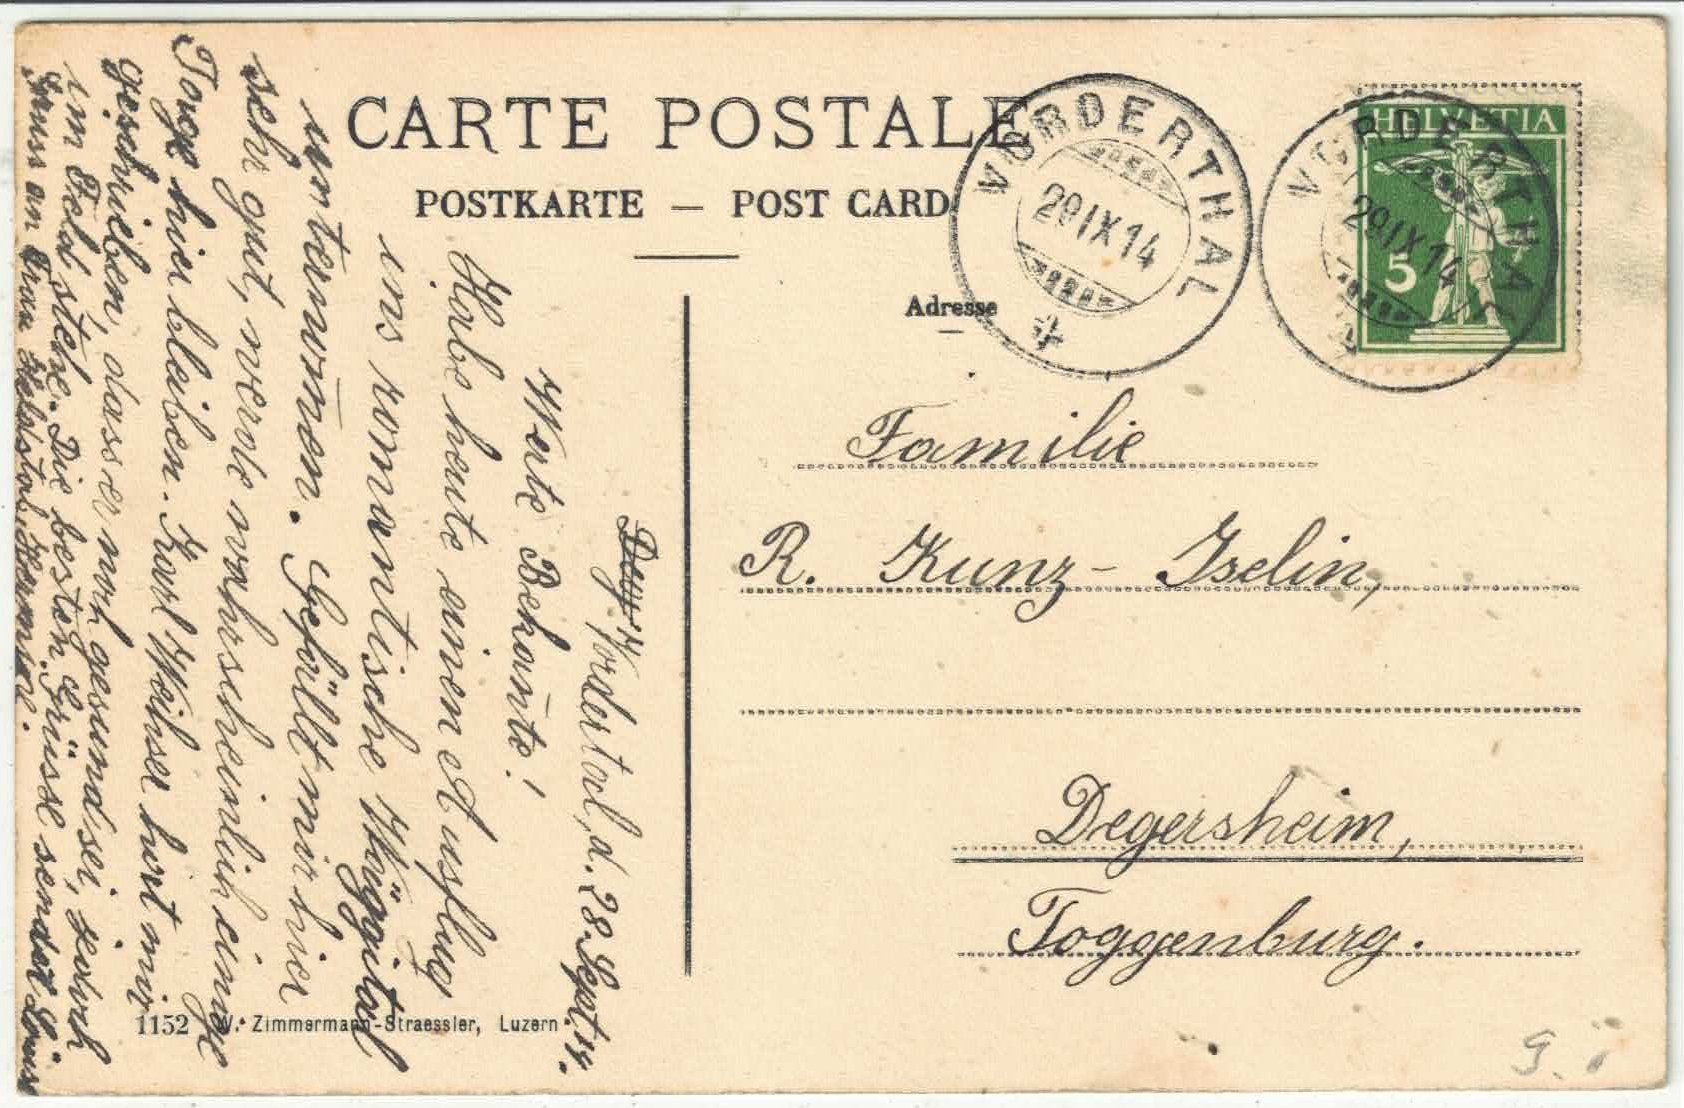 CARTE POSTALE
POSTKARTE — POST CARD
Adresse
VORDERTHAL
29 IX 14
VORDERTHAL
29 IX 14
HELVETIA
5
Familie
R. Kunz-Iselin,
Degersheim,
Toggenburg.
Vordertal, d. 28. Sept. 14.
Werte Bekañte!
Habe heute einen Ausflug
ins romantische Wägital
unternom̄en. Gefällt mir hier
sehr gut, werde wahrscheinlich einige
Tage hier bleiben. Karl Weihser hat mir
geschrieben, dass er noch gesund sei, jedoch
im Feld stehe. Die besten Grüsse sendet Louise
Gruss an Frau Hermia.
1152 W. Zimmermann-Straessler, Luzern